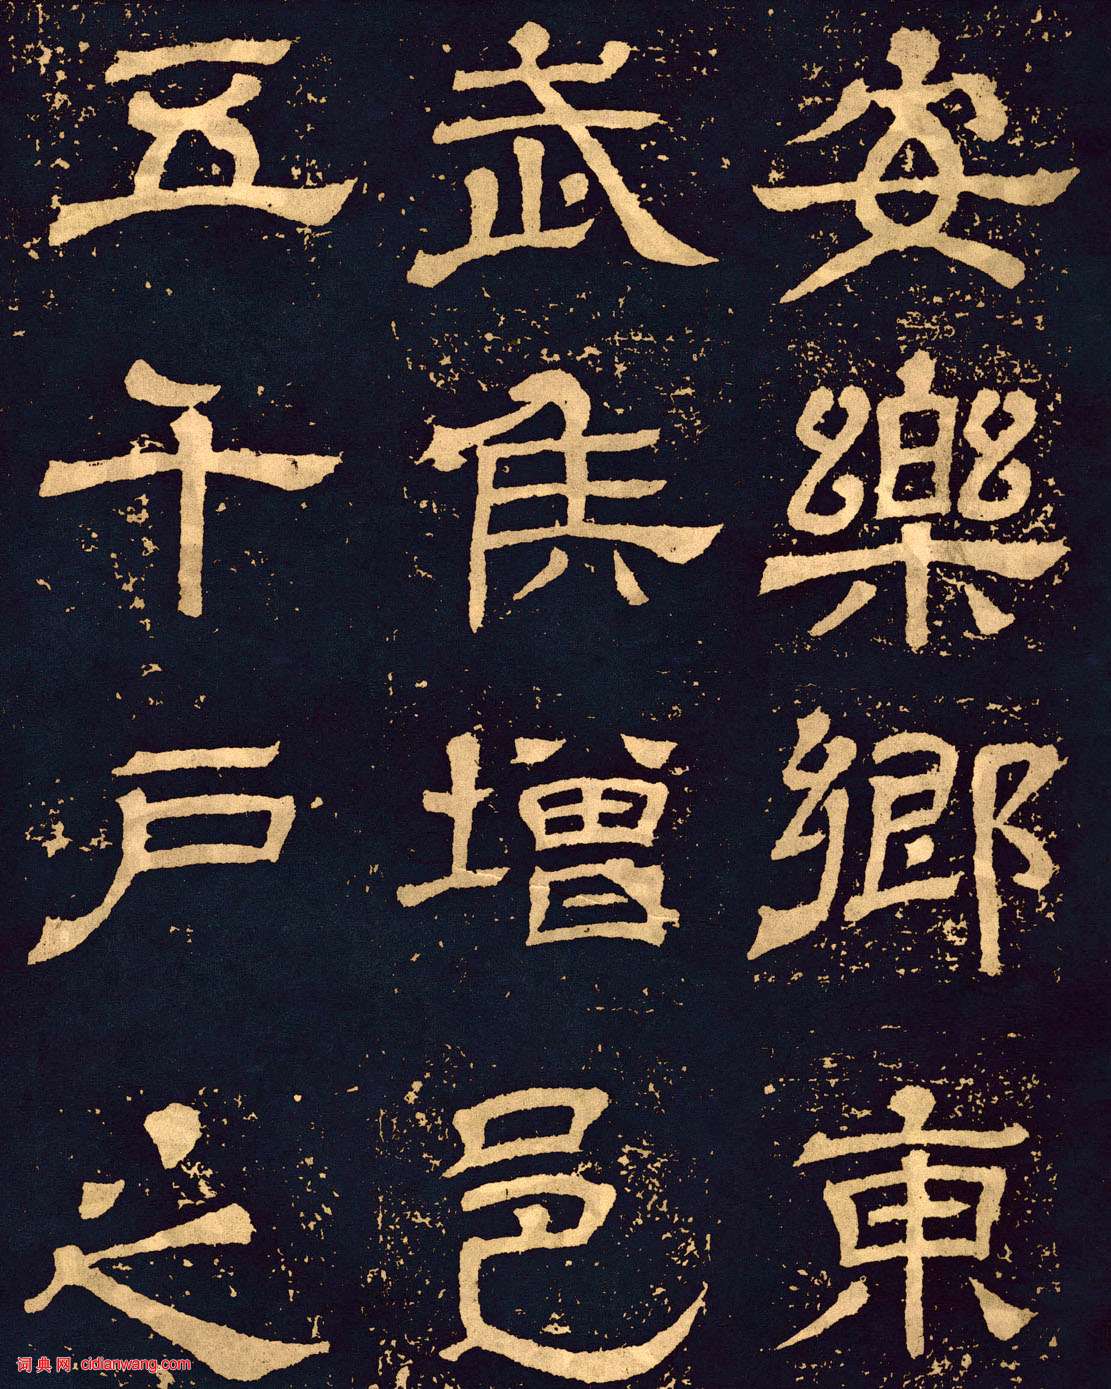 安樂鄉東
武侯增邑
五千戶之
词典网·cidianwang.com